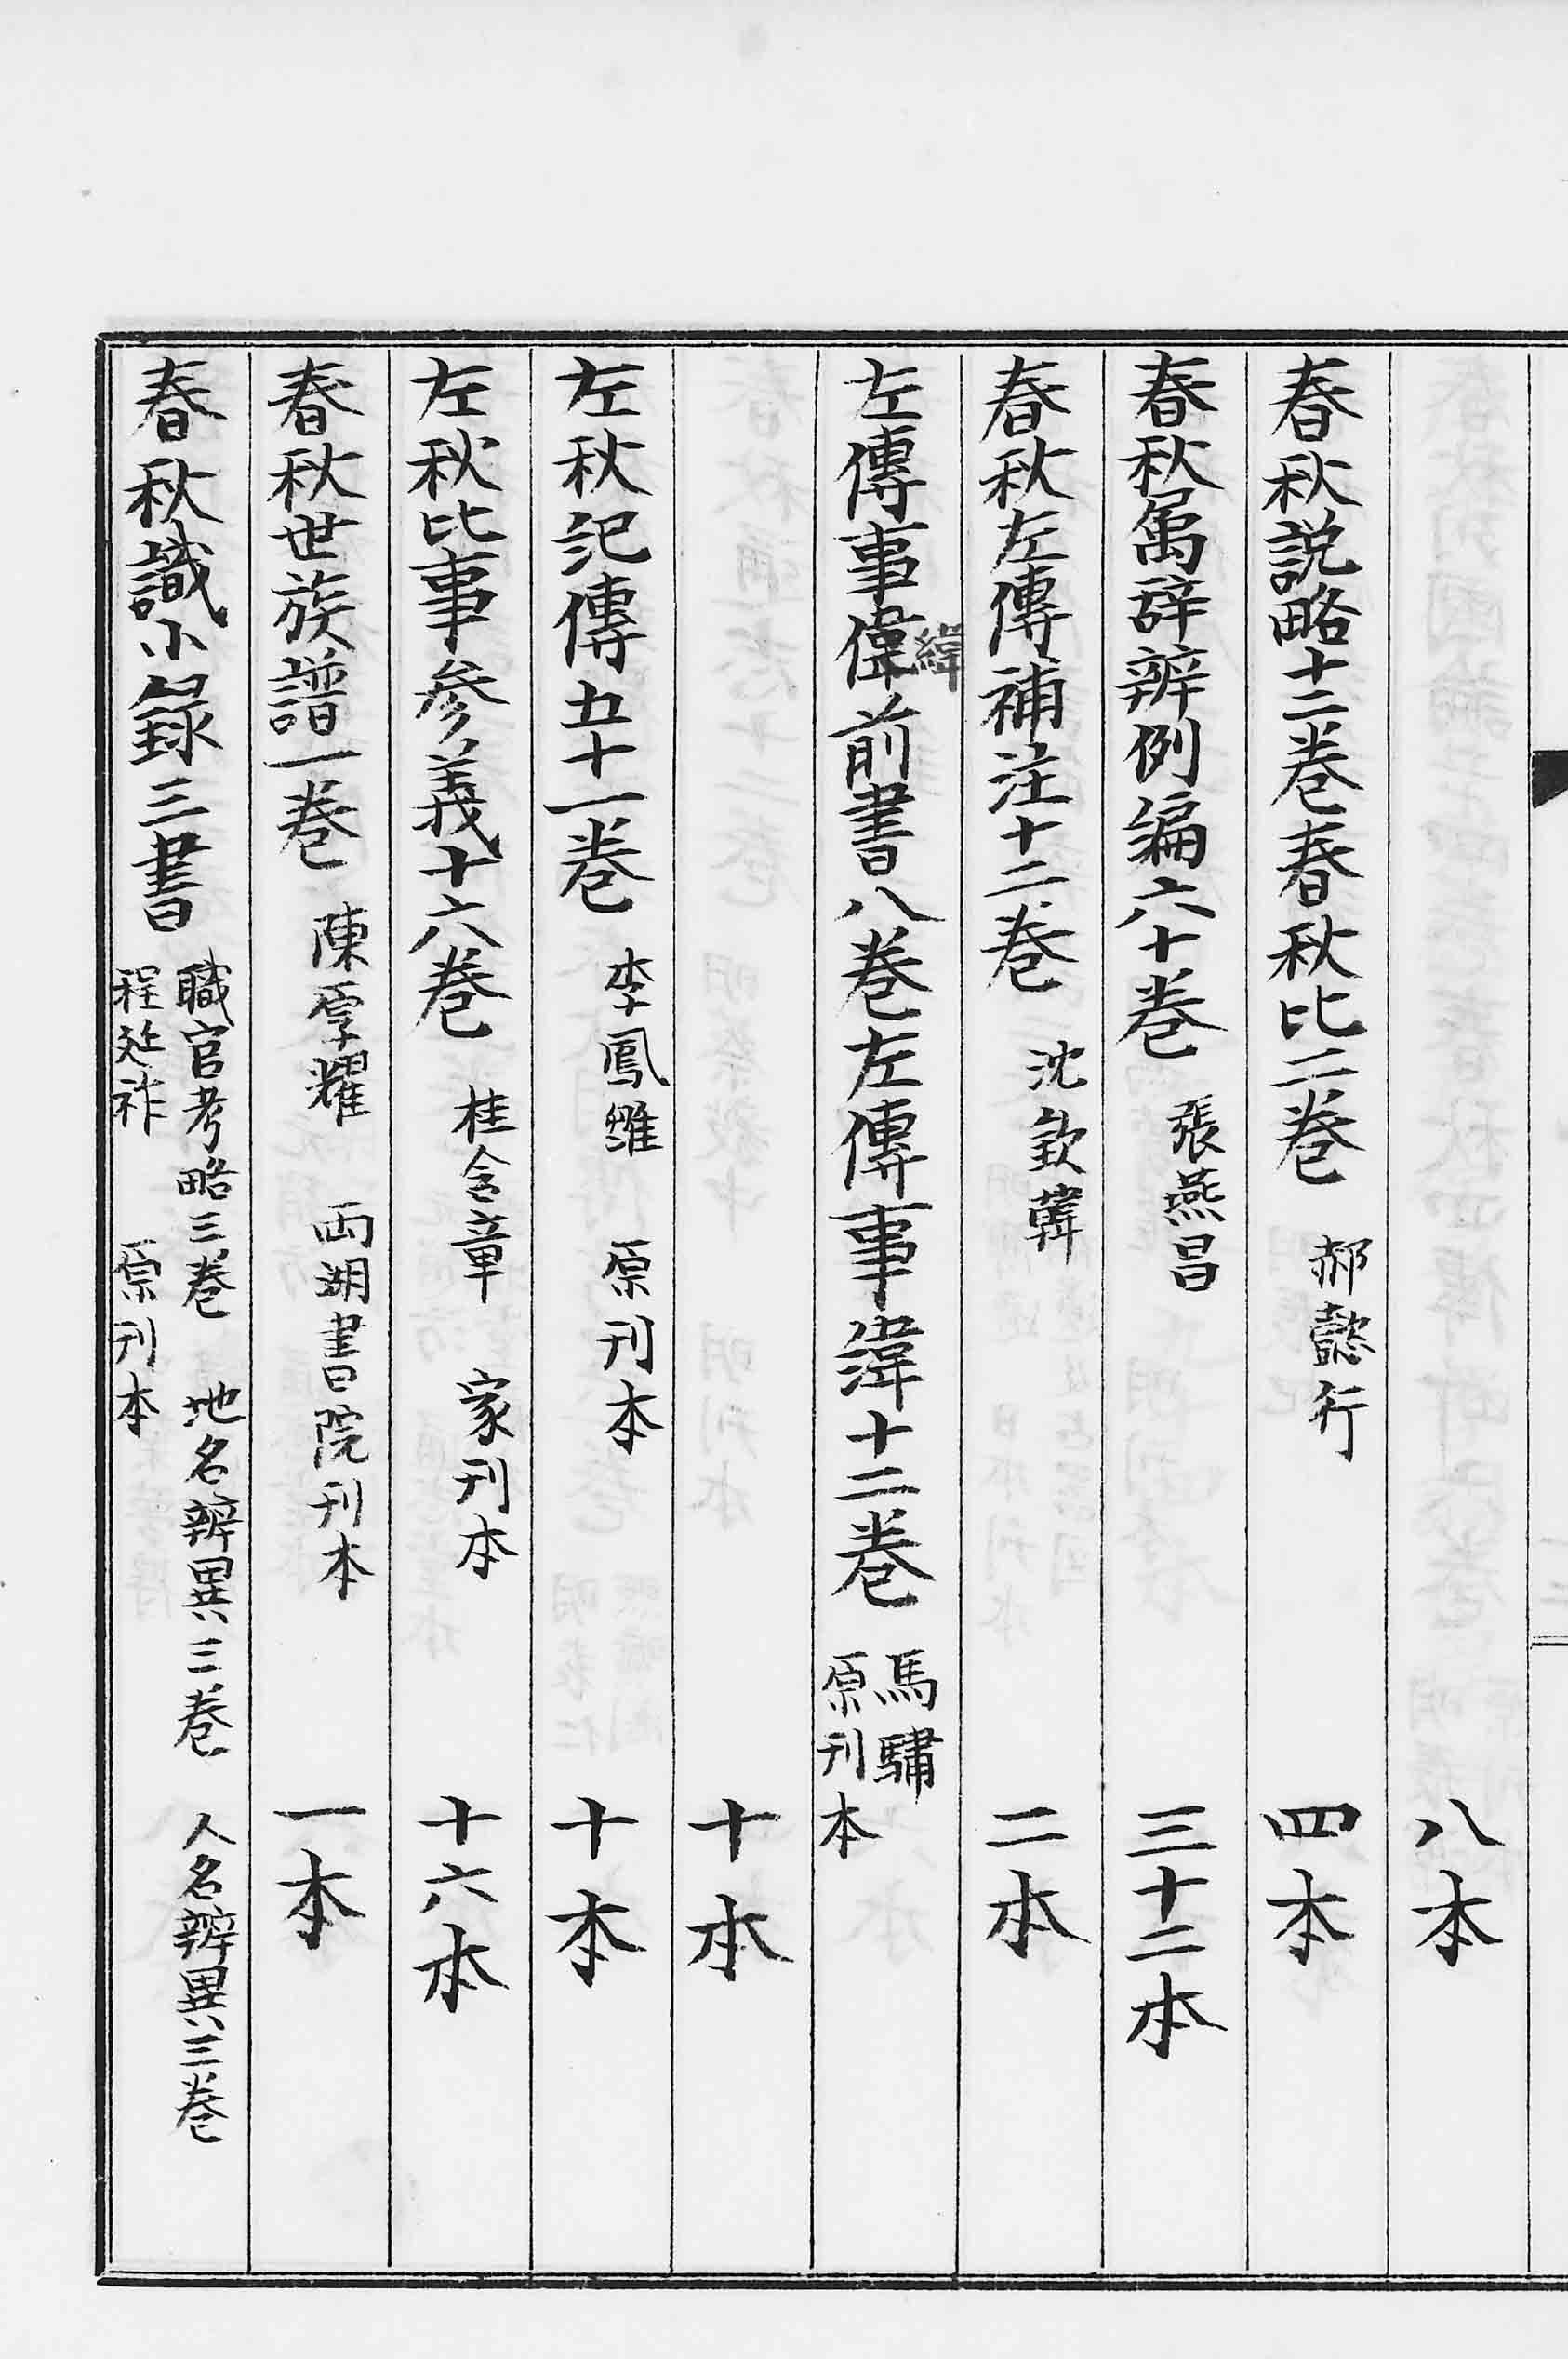 八本
春秋説略十二巻春秋比二巻 郝懿行 四本
春秋屬辞辨例編六十巻 張燕昌 三十二本
春秋左傳補注十二巻 沈欽韓 二本
左傳事偉前書八巻左傳事緯十二巻 馬驌 原刊本
緯
十本
左秋記傳五十一巻 李鳳雛 原刊本 十本
左秋比事参義十六巻 桂含章 家刊本 十六本
春秋世族譜一巻 陳厚耀 両湖書院刊本 一本
春秋識小録三書 職官考略三巻 地名辨異三巻 人名辨異三巻
程廷祚 原刊本